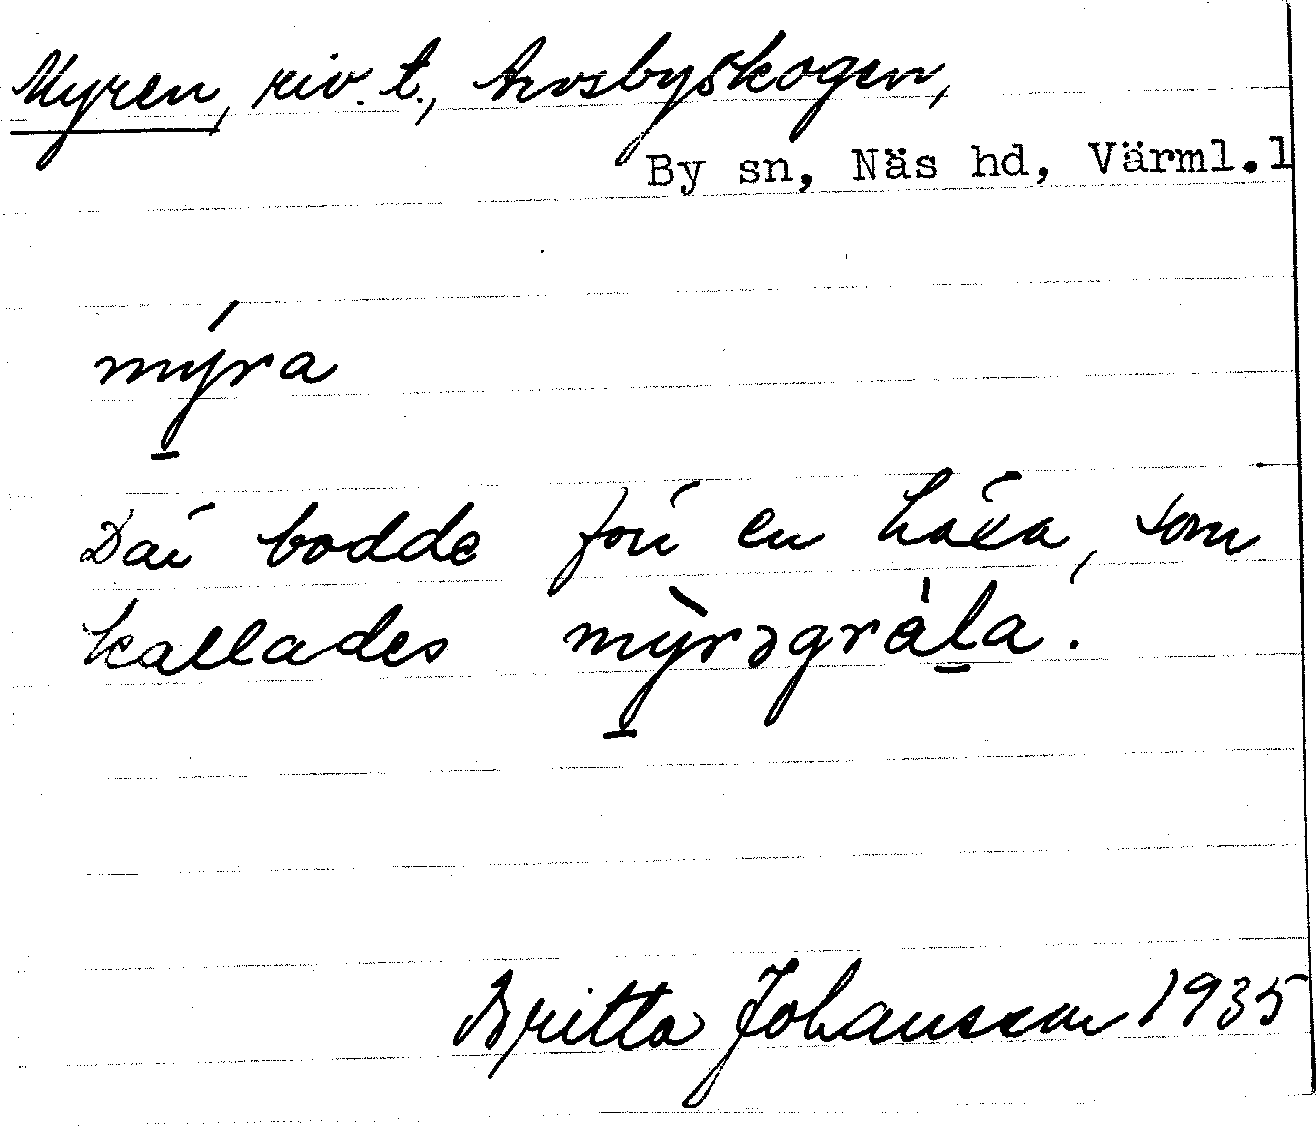 Myren, riv. t., Arosbyskogen,
By sn, Näs hd, Värml.l
mýra
Där bodde förr en häxa, som
kallades mỳrəgràla.
Britta Johansson 1935